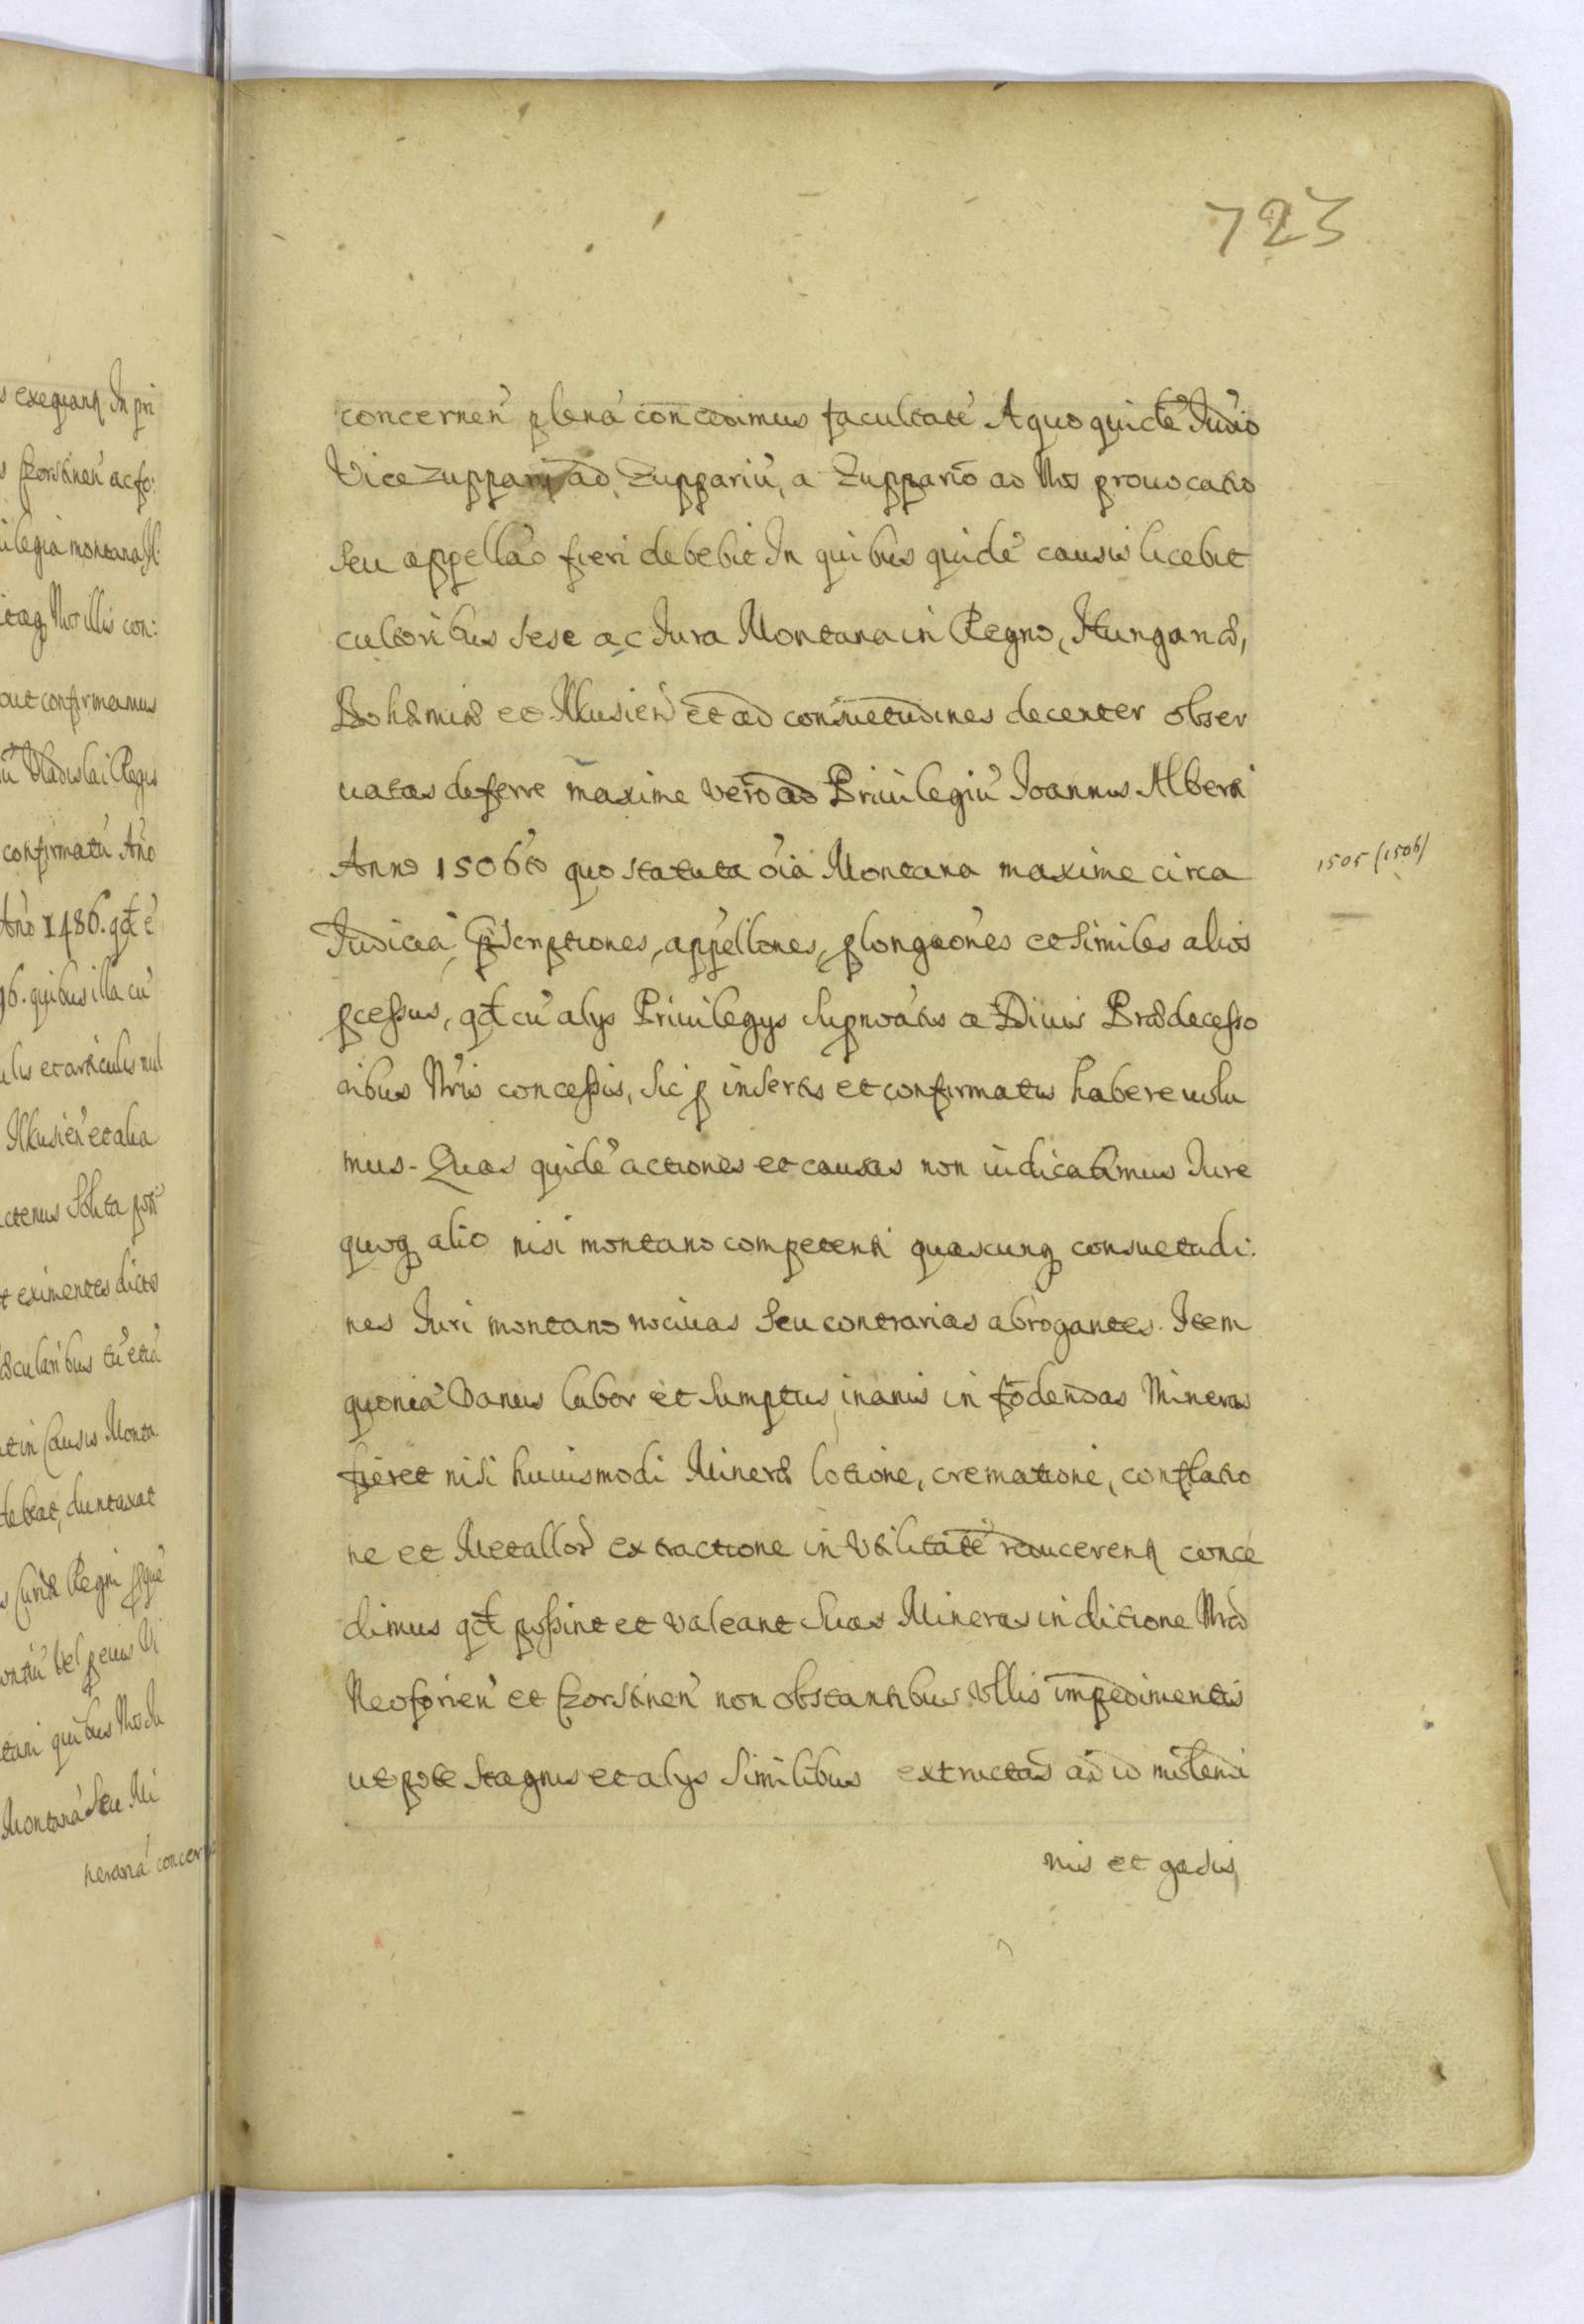 723
concernen̄ plenā concedimus facultatē A quo quidē Iud̄io
Vicezupparij ad Zuppariū, a Zuppario ad Nos prouocatio
seu appellāo fieri debebit In quibus quidē causis licebit
cultoribus sese ac Iura Montana in Regno, Hungariæ,
Bohæmiæ et Ilkusien̄ et ad consuetudines decenter obser
uatas deferre maxime vero ad Priuilegiū Joannis Alberti
Anno 1506to quo statuta oīa Montana maxime circa
Iudicia, pscriptiones, appellōnes, plongaōnes et similes alios
pcessus, qd cū alys Priuilegys supnoātis a Diuis Prædecesso
ribus Nr̄is concessis, sic p insertis et confirmatis habere volu
mus. Quas quidē actiones et causas non iudicabimus Iure
quoq alio nisi montano competenti quascunq consuetudi:
nes Iuri montano nociuas seu contrarias abrogantes. Item
quoniā Vanus labor et sumptus inanis in fodendas Mineras
fieret nisi huiusmodi Mineræ lotione, crematione, conflatio
ne et Metallor̄ extractione in Vtilitatē reducerent conce
dimus qd possint et valeant suas Mineras in ditione Nræ
Neoforien̄ et Czorstinen̄ non obstantibus vllis impedimentis
utpote stagnis et alys similibus extructas ad id molendi
nis et gasis,
1505 (1506)
s exequant In pri
s Czorstinen̄ ac fo:
uilegia montana
itaq Nos illis con:
out confirmamus
ū Vladislai Regis
confirmatū Ano
Anō 1486. qd ē
96. quibus illa cū
ulis et articulis nul
Ilkusien̄ et alia
ctenus solita
t eximentes dicto
æcularibus tū etiā
at in Causis Monta
debeat, duntaxat
s Curiæ Regni
vel peius Vi
tani quibus
Montanā seu Mi
nerariā concern